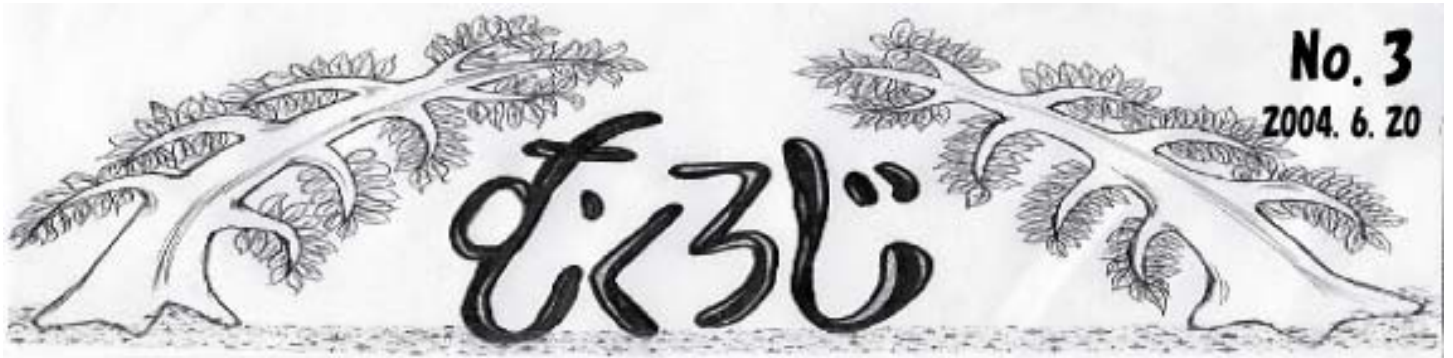 No. 3
2004. 6. 20
むくろじ